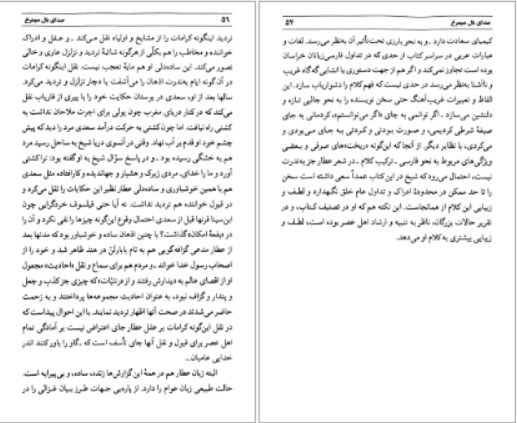 ۵۶ صدای بال سیمرغ
تردید اینگونه کرامات را از مشایخ و اولیاء نقل می‌کند ـ و عقل و ادراک
خواننده و مخاطب را هم بکلّی از هرگونه شائبهٔ تردید و تزلزل عاری و خالی
تصور می‌کند. این ساده‌دلی او هم مایهٔ تعجب نیست. نقل اینگونه کرامات
در آن گونه ایام بندرت اذهان را می‌آشفت یا دچار تزلزل و تردید می‌کرد.
سالها بعد از او، سعدی در بوستان حکایت خود را با پیری از فاریاب نقل
می‌کند که در کنار دریای مغرب چون پولی برای اجرت ملاحان نداشت به
کشتی راه نیافت. اما چون کشتی به حرکت درآمد سعدی مرد را دید که پیش
چشم خود او قدم بر آب نهاد. وقتی در آنسوی دریا شیخ به ساحل رسید مرد
هم به خشکی رسیده بود ـ و در پاسخ سؤال شیخ به او گفته بود: ترا کشتی
آورد و ما را خدای. مردی زیرک و هشیار و جهاندیده و کارافتاده مثل سعدی
هم با همین خوشباوری و ساده‌دلی عطار نظیر این حکایات را نقل می‌کرد و
در قبول خواننده هم تردید نداشت. نه آیا حتی فیلسوف خردگرایی چون
ابن‌سینا قرنها قبل از سعدی احتمال وقوع این‌گونه چیزها را نفی نکرد و آن را
در «بقعهٔ امکان» گذاشت؟ با چنین اذهان ساده و خوشباور بود که مدتها بعد
از عطار مدعی گزافه‌گویی هم به نام بابارتن در هند ظاهر شد و خود را از
اصحاب رسول خدا خواند ـ و مردم هم برای سماع و نقل «احادیث» مجعول
او از اقصای عالم به دیدارش رفتند و از «رتنیّات» که چیزی جز کذب و جعل
و پندار و گزاف نبود، به عنوان احادیث مجموعه‌ها پرداختند و به زحمت
حاضر می‌شدند در صحت آنها اظهار تردید نمایند. با این احوال پیداست که
در نقل این‌گونه کرامات بر عقل عطار جای اعتراض نیست بر آمادگی تمام
اهل عصر برای قبول و نقل آنها جای تأسف است که ـ گاو را باور کنند اندر
خدایی عامیان...
البته زبان عطار هم در همهٔ این گزارش‌ها زنده، ساده، و بی‌پیرایه است.
حالت طبیعی زبان عوام را دارد. از پاره‌یی جهات طرز بیان غزالی را در
صدای بال سیمرغ ۵۷
کیمیای سعادت دارد ـ و به نحو بارزی تحت‌تأثیر آن به‌نظر می‌رسد. لغات و
عبارات عربی در سراسر کتاب از حدی که در تداول فارسی‌زبانان خراسان
بوده است تجاوز نمی‌کند و اگر هم از جهت دستوری یا انشایی گه‌گاه غریب
و ناآشنا به‌نظر می‌رسد در حدی نیست که فهم کلام را دشواریاب سازد. این
الفاظ و تعبیرات غریب‌آهنگ حتی سخن نویسنده را به نحو جالبی تازه و
دلنشین می‌سازد ـ اگر توانمی به جای «اگر می‌توانستم»، کردمانی به جای
صیغهٔ شرطی کردیمی، و صورت ببودتی و کردتی به جای می‌بودی و
می‌کردی، با نظایر دیگر. از آنجا که این‌گونه «ریخت»های صرفی و بعضی
ویژگی‌های مربوط به نحو فارسی ـ ترکیب کلام ـ در شعر عطار جز به‌ندرت
نیست، احتمال می‌رود که شیخ در این کتاب عمداً سعی داشته است سخن
را تا حد ممکن در محدودهٔ ادراک و تداول عام خلق نگهدارد و لطف و
زیبایی این کلام از همانجاست. این نکته هم که او در تصنیف کتاب، و در
تقریر حالات بزرگان، ناظر به تنبیه و ارشاد اهل عصر بوده است، لطف و
زیبایی بیشتری به کلام او می‌دهد.